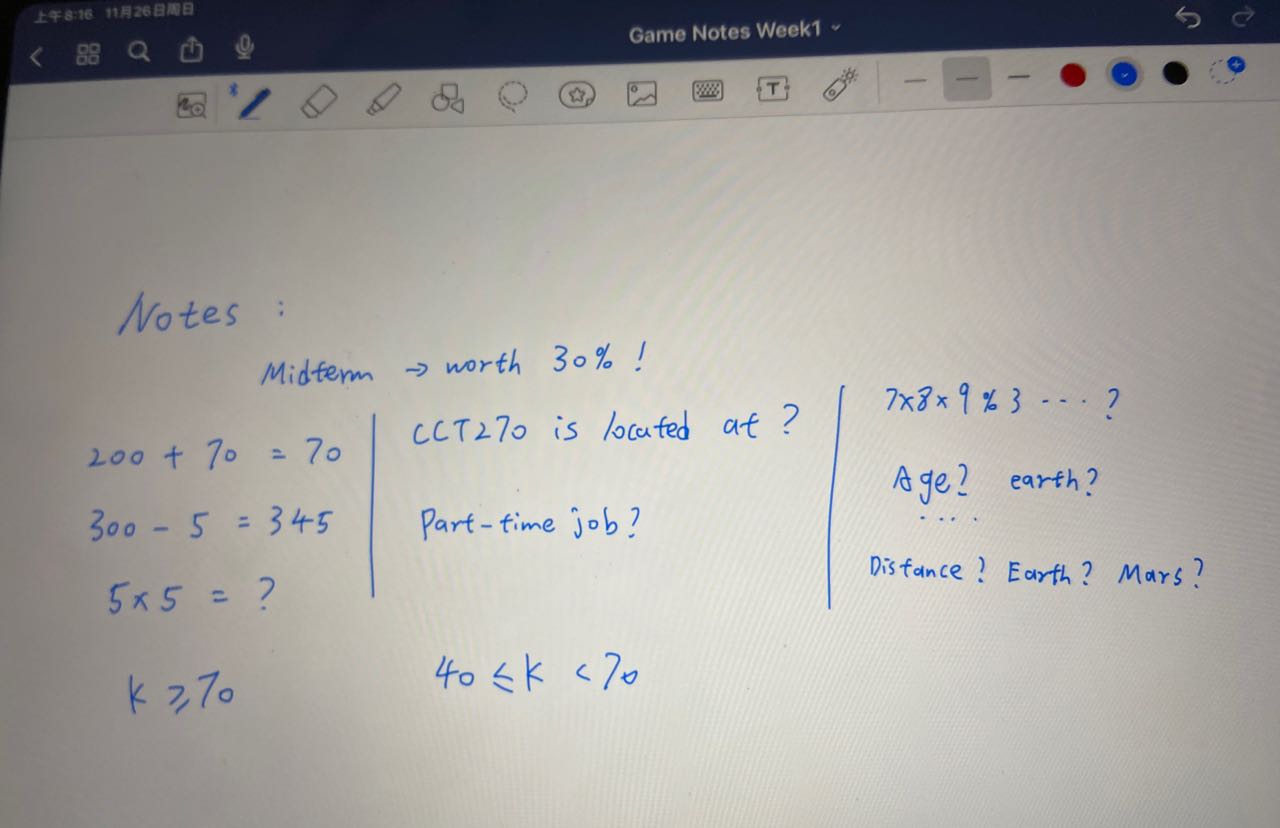 上午8:16 11月26日周日
Game Notes Week1
T
Notes :
Midterm → worth 30% !
200 + 70 = 70
300 - 5 = 345
5x5 = ?
k ≥ 70
CCT270 is located at ?
Part-time job?
40 ≤ k < 70
7x8x9 % 3 --- ?
Age? earth?
....
Distance? Earth? Mars?